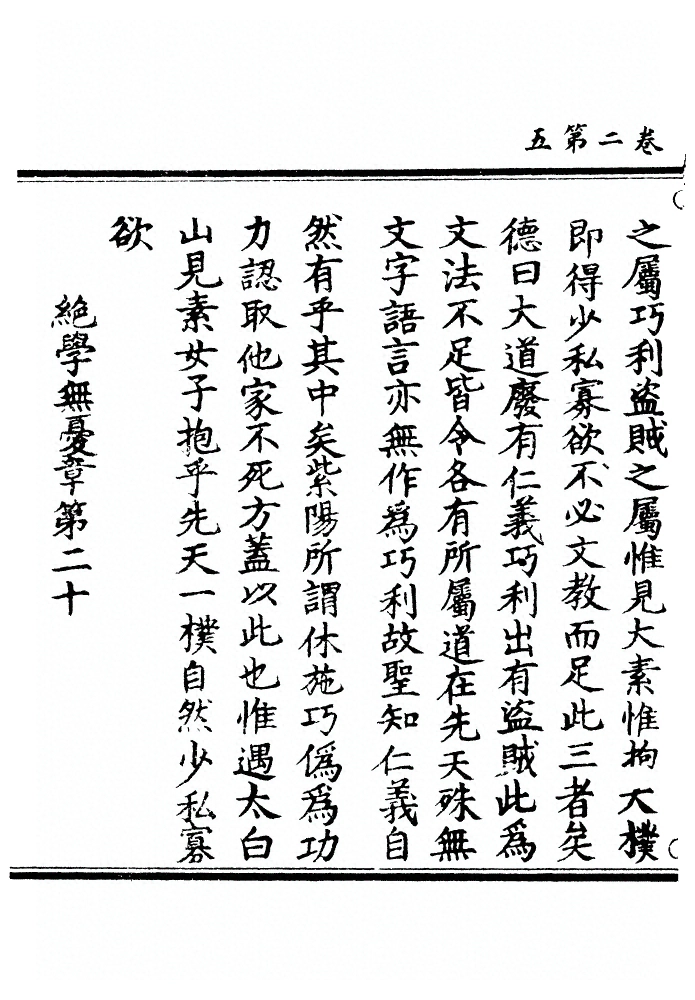 卷二第五
之屬巧利盜賊之屬惟見大素惟拘大樸
即得少私寡欲不必文教而足此三者矣
德曰大道廢有仁義巧利出有盜賊此為
文法不足皆令各有所屬道在先天殊無
文字語言亦無作為巧利故聖知仁義自
然有乎其中矣紫陽所謂休施巧偽為功
力認取他家不死方蓋以此也惟遇太白
山見素女子抱乎先天一樸自然少私寡
欲
絕學無憂章第二十